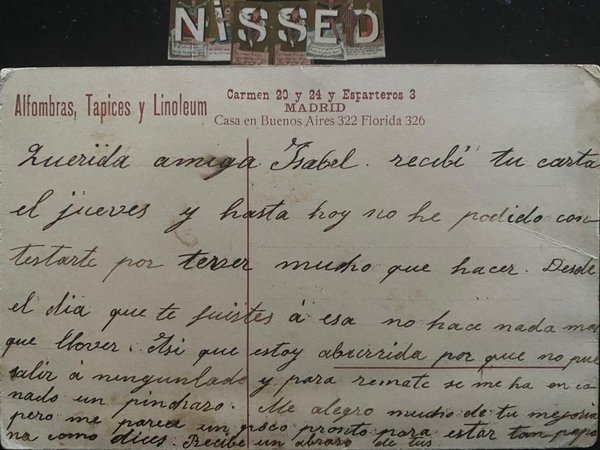 NiSSED
Alfombras, Tapices y Linoleum
Carmen 20 y 24 y Esparteros 3
MADRID
Casa en Buenos Aires 322 Florida 326
Querida amiga Isabel. recibí tu carta
el jueves y hasta hoy no he podido con
testarte por terser mucho que hacer. Desde
el dia que te fuistes á esa no hace nada mas
que llover. Asi que estoy aburrida por que no pue
salir á ningunlado y para remate se me ha en co
nado un pincharo. Me alegro mucho de tu mejoria
pero me parece un poco pronto para estar tan pepo
na como dices. Recibe un abraro de tus